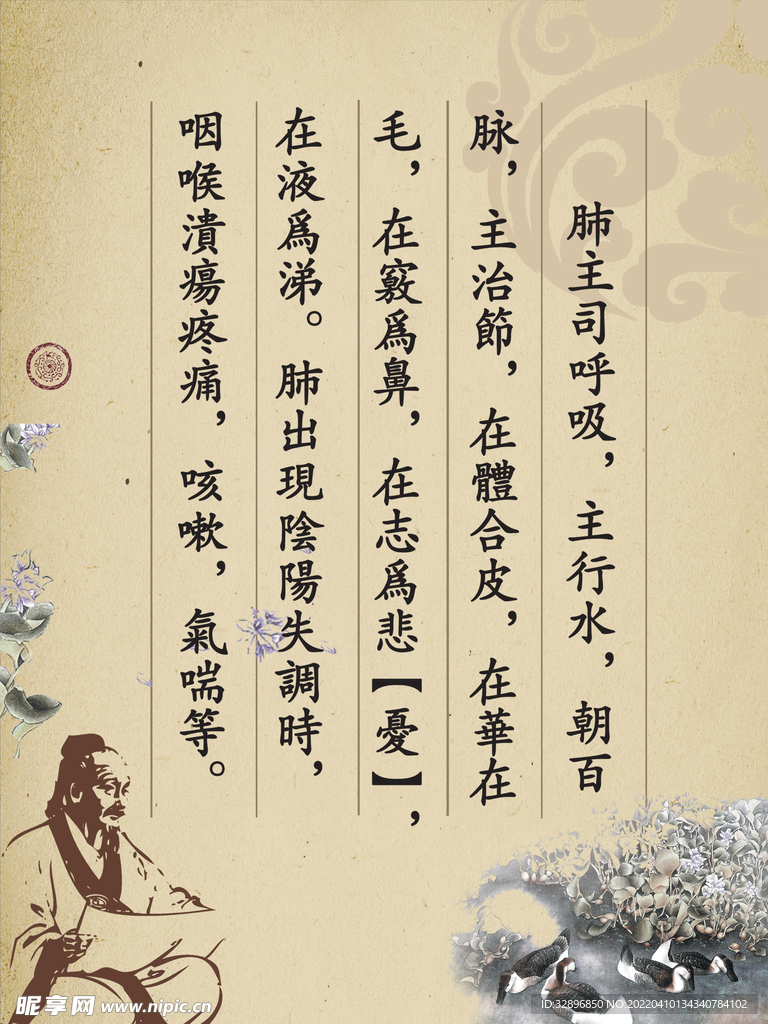 肺主司呼吸，主行水，朝百
脉，主治節，在體合皮，在華在
毛，在竅爲鼻，在志爲悲【憂】，
在液爲涕。肺出現陰陽失調時，
咽喉潰瘍疼痛，咳嗽，氣喘等。
昵享网 www.nipic.cn
ID:32896850 NO:20220410134340784102